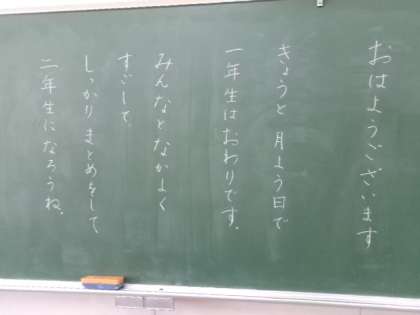 おはようございます
きょうと 月よう日で
一年生はおわりです。
みんなとなかよく
すごして
しっかりまとめをして
二年生になろうね。